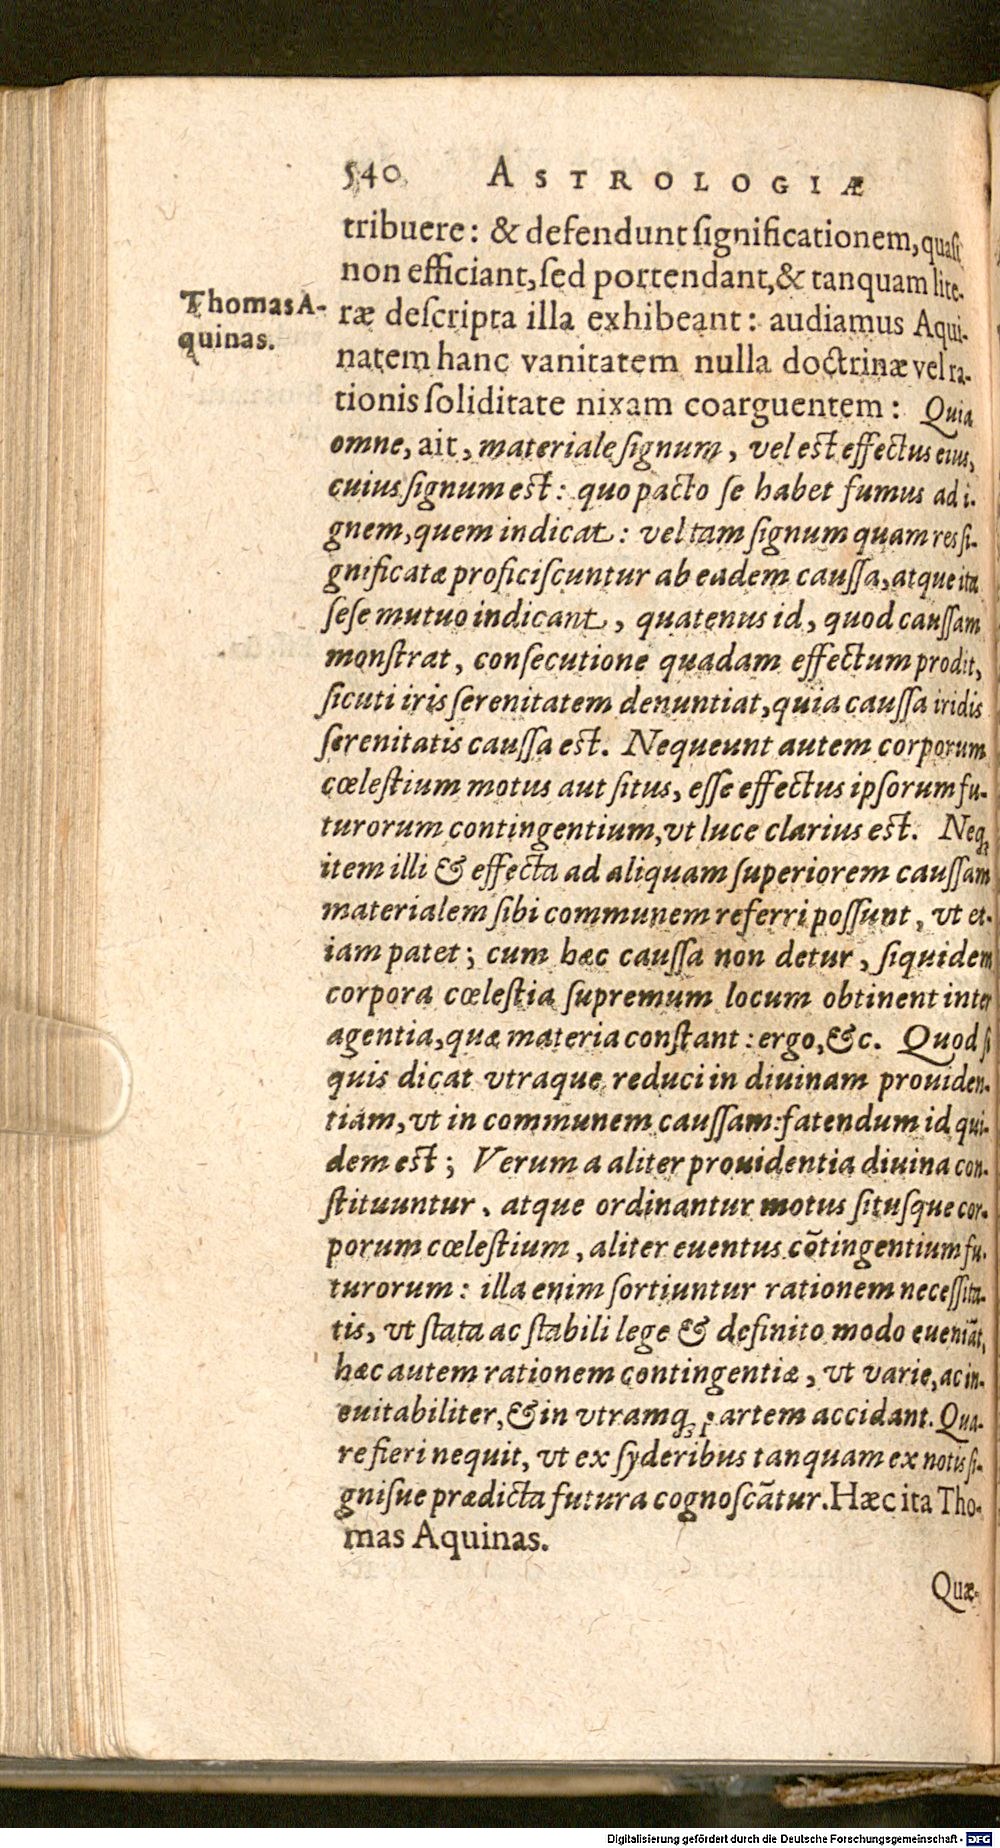 540 ASTROLOGIÆ
tribuere: & defendunt ſignificationem, quaſi
non efficiant, ſed portendant, & tanquam lite-
Thomas A-
quinas.
ræ deſcripta illa exhibeant: audiamus Aqui-
natem hanc vanitatem nulla doctrinæ vel ra-
tionis ſoliditate nixam coarguentem: Quia
omne, ait, materiale ſignum, vel eſt effectus eius,
cuius ſignum eſt: quo pacto ſe habet fumus ad i-
gnem, quem indicat: vel tam ſignum quam res ſi-
gnificatæ proficiſcuntur ab eadem cauſſa, atque ita
ſeſe mutuo indicant, quatenus id, quod cauſſam
monſtrat, conſecutione quadam effectum prodit,
ſicuti iris ſerenitatem denuntiat, quia cauſſa iridis
ſerenitatis cauſſa eſt. Nequeunt autem corporum
cœleſtium motus aut ſitus, eſſe effectus ipſorum fu-
turorum contingentium, vt luce clarius eſt. Neq;
item illi & effecta ad aliquam ſuperiorem cauſſam
materialem ſibi communem referri poſſunt, vt et-
iam patet; cum hæc cauſſa non detur, ſiquidem
corpora cœleſtia ſupremum locum obtinent inter
agentia, quæ materia conſtant: ergo, &c. Quod ſi
quis dicat vtraque reduci in diuinam prouiden-
tiam, vt in communem cauſſam: fatendum id qui-
dem eſt; Verum a aliter prouidentia diuina con-
ſtituuntur, atque ordinantur motus ſituſque cor-
porum cœleſtium, aliter euentus cõtingentium fu-
turorum: illa enim ſortiuntur rationem neceſſita-
tis, vt ſtata ac ſtabili lege & definito modo eueniãt,
hæc autem rationem contingentiæ, vt varie, ac in-
euitabiliter, & in vtramq; partem accidant. Qua-
re fieri nequit, vt ex ſyderibus tanquam ex notis ſi-
gniſue prædicta futura cognoſcãtur. Hæc ita Tho-
mas Aquinas.
Quæ-
Digitalisierung gefördert durch die Deutsche Forschungsgemeinschaft - DFG